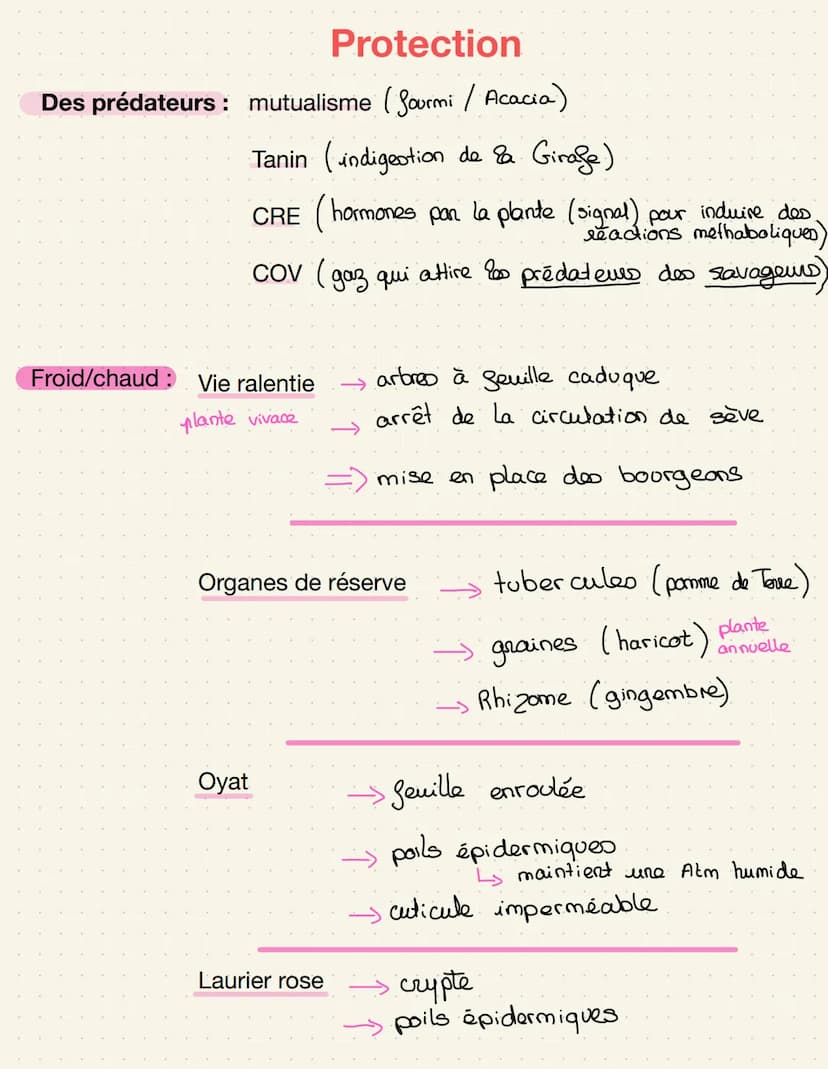 Protection
Des prédateurs : mutualisme (fourmi / Acacia)
Tanin (indigestion de la Girafe)
CRE (hormones par la plante (signal) pour induire des
réactions méthaboliques)
COV (gaz qui attire les prédateurs des ravageurs)
Froid/chaud : Vie ralentie → arbres à feuille caduque
plante vivace → arrêt de la circulation de sève
⇒ mise en place des bourgeons
Organes de réserve → tubercules (pomme de Terre)
→ graines (haricot) plante annuelle
→ Rhizome (gingembre)
Oyat → feuille enroulée
→ poils épidermiques
↳ maintient une Atm humide
→ cuticule imperméable
Laurier rose → crypte
→ poils épidermiques